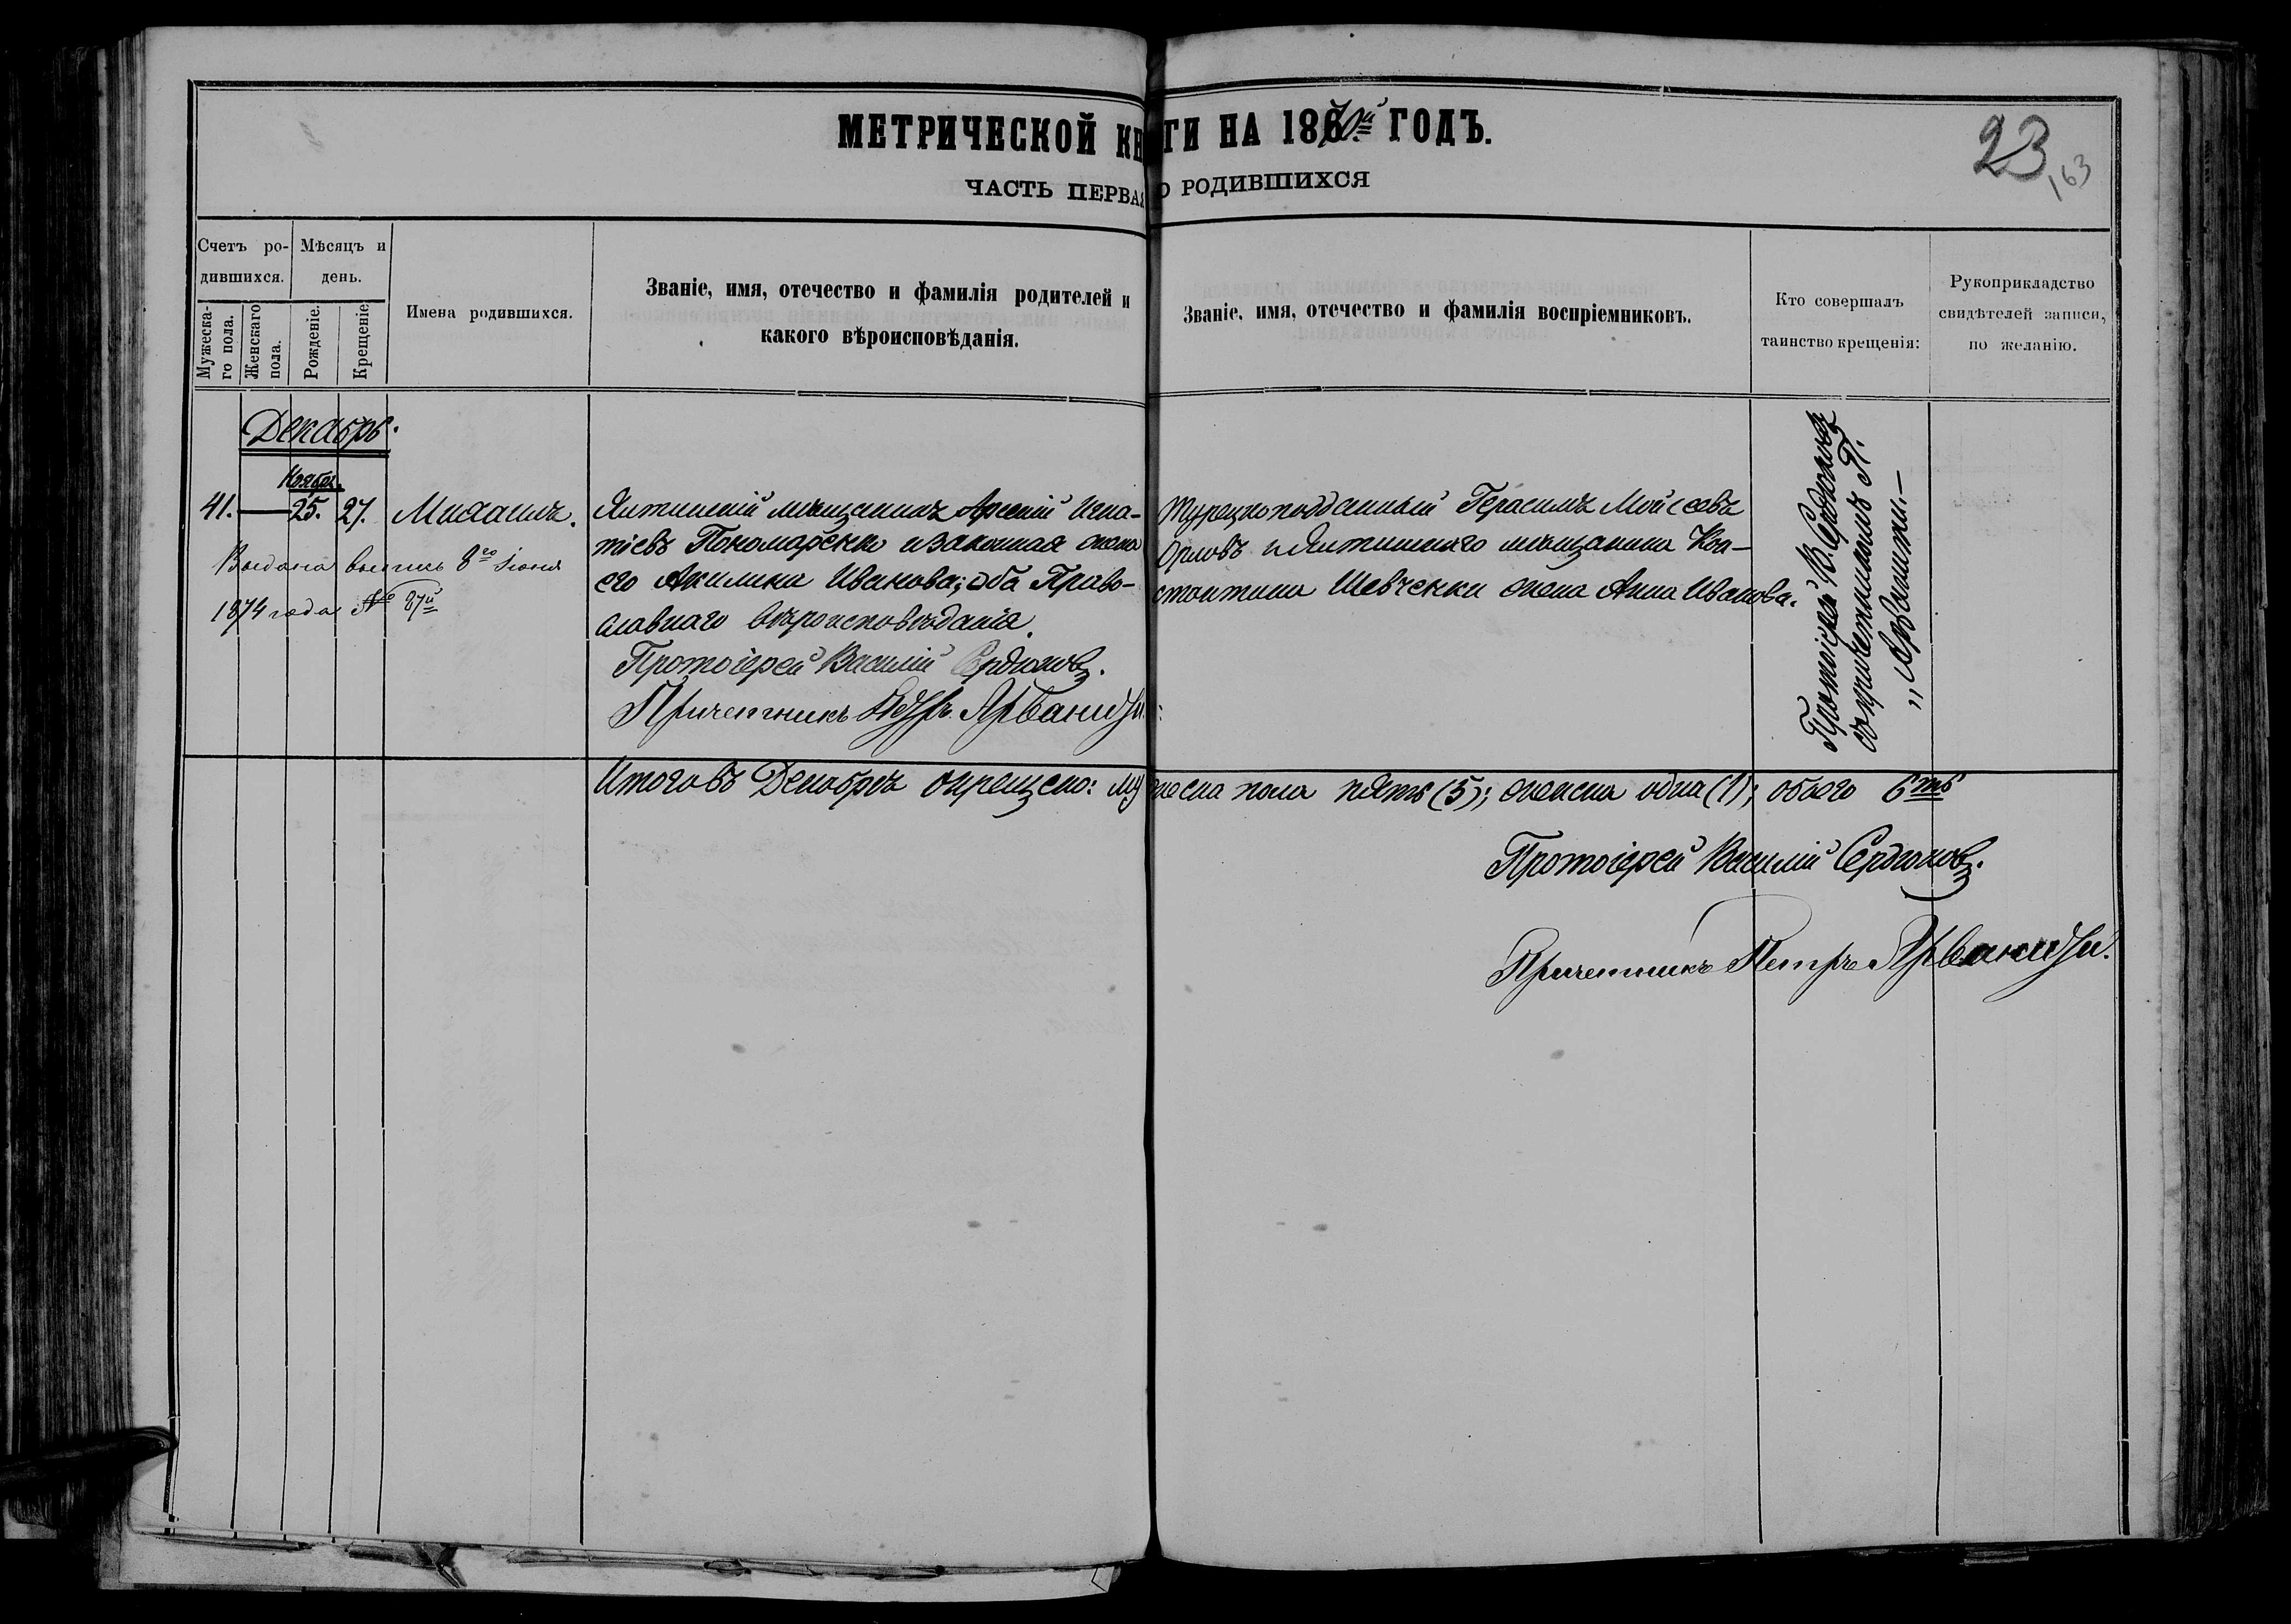 МЕТРИЧЕСКОЙ КНИГИ НА 1870й ГОДЪ.
23
163
ЧАСТЬ ПЕРВАЯ О РОДИВШИХСЯ
Счетъ ро-
дившихся.
Мужеска-
го пола.
Женскаго
пола.
Мѣсяцъ и
день.
Рожденіе.
Крещеніе.
Имена родившихся.
Званіе, имя, отечество и фамилія родителей и
какого вѣроисповѣданія.
Званіе, имя, отечество и фамилія воспріемниковъ.
Кто совершалъ
таинство крещенія:
Рукоприкладство
свидѣтелей записи,
по желанію.
Декабрь.
Ноября
41. — 25. 27. Михаилъ.
Выдана выпись 8го Іюня
1874 года № 87й
Ялтинскій мѣщанинъ Арсеній Игна-
тіевъ Пономаренко и законная жена
его Акилина Иванова; оба Право-
славнаго вѣроисповѣданія.
Протоіерей Василій Сердюковъ.
Причетникъ Петръ Арваниди.
Турецкоподданный Герасимъ Мойсеевъ
Орловъ и Ялтинскаго мѣщанина Кон-
стантина Шевченки жена Анна Иванова.
Протоіерей В. Сердюковъ
съ причетникомъ П.
„Арваниди.—
Итого въ Декабрѣ окрещено: мужеска пола пять (5); женска одна (1); обоего 6ть
Протоіерей Василій Сердюковъ.
Причетникъ Петръ Арваниди.